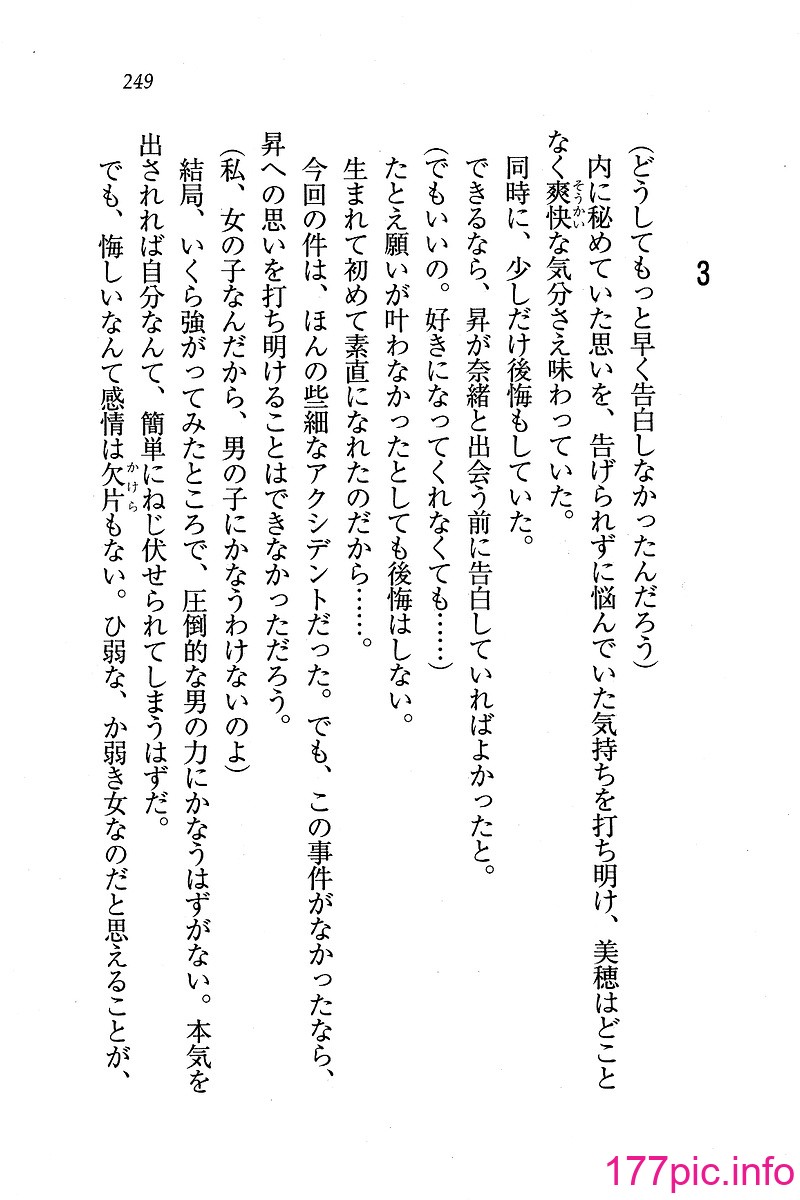 249
3
(どうしてもっと早く告白しなかったんだろう)
内に秘めていた思いを、告げられずに悩んでいた気持ちを打ち明け、美穂はどこと
なく爽快な気分さえ味わっていた。
そうかい
同時に、少しだけ後悔もしていた。
できるなら、昇が奈緒と出会う前に告白していればよかったと。
(でもいいの。好きになってくれなくても……)
たとえ願いが叶わなかったとしても後悔はしない。
生まれて初めて素直になれたのだから……。
今回の件は、ほんの些細なアクシデントだった。でも、この事件がなかったなら、
昇への思いを打ち明けることはできなかっただろう。
(私、女の子なんだから、男の子にかなうわけないのよ)
結局、いくら強がってみたところで、圧倒的な男の力にかなうはずがない。本気を
出されれば自分なんて、簡単にねじ伏せられてしまうはずだ。
でも、悔しいなんて感情は欠片もない。ひ弱な、か弱き女なのだと思えることが、
かけら
177pic.info